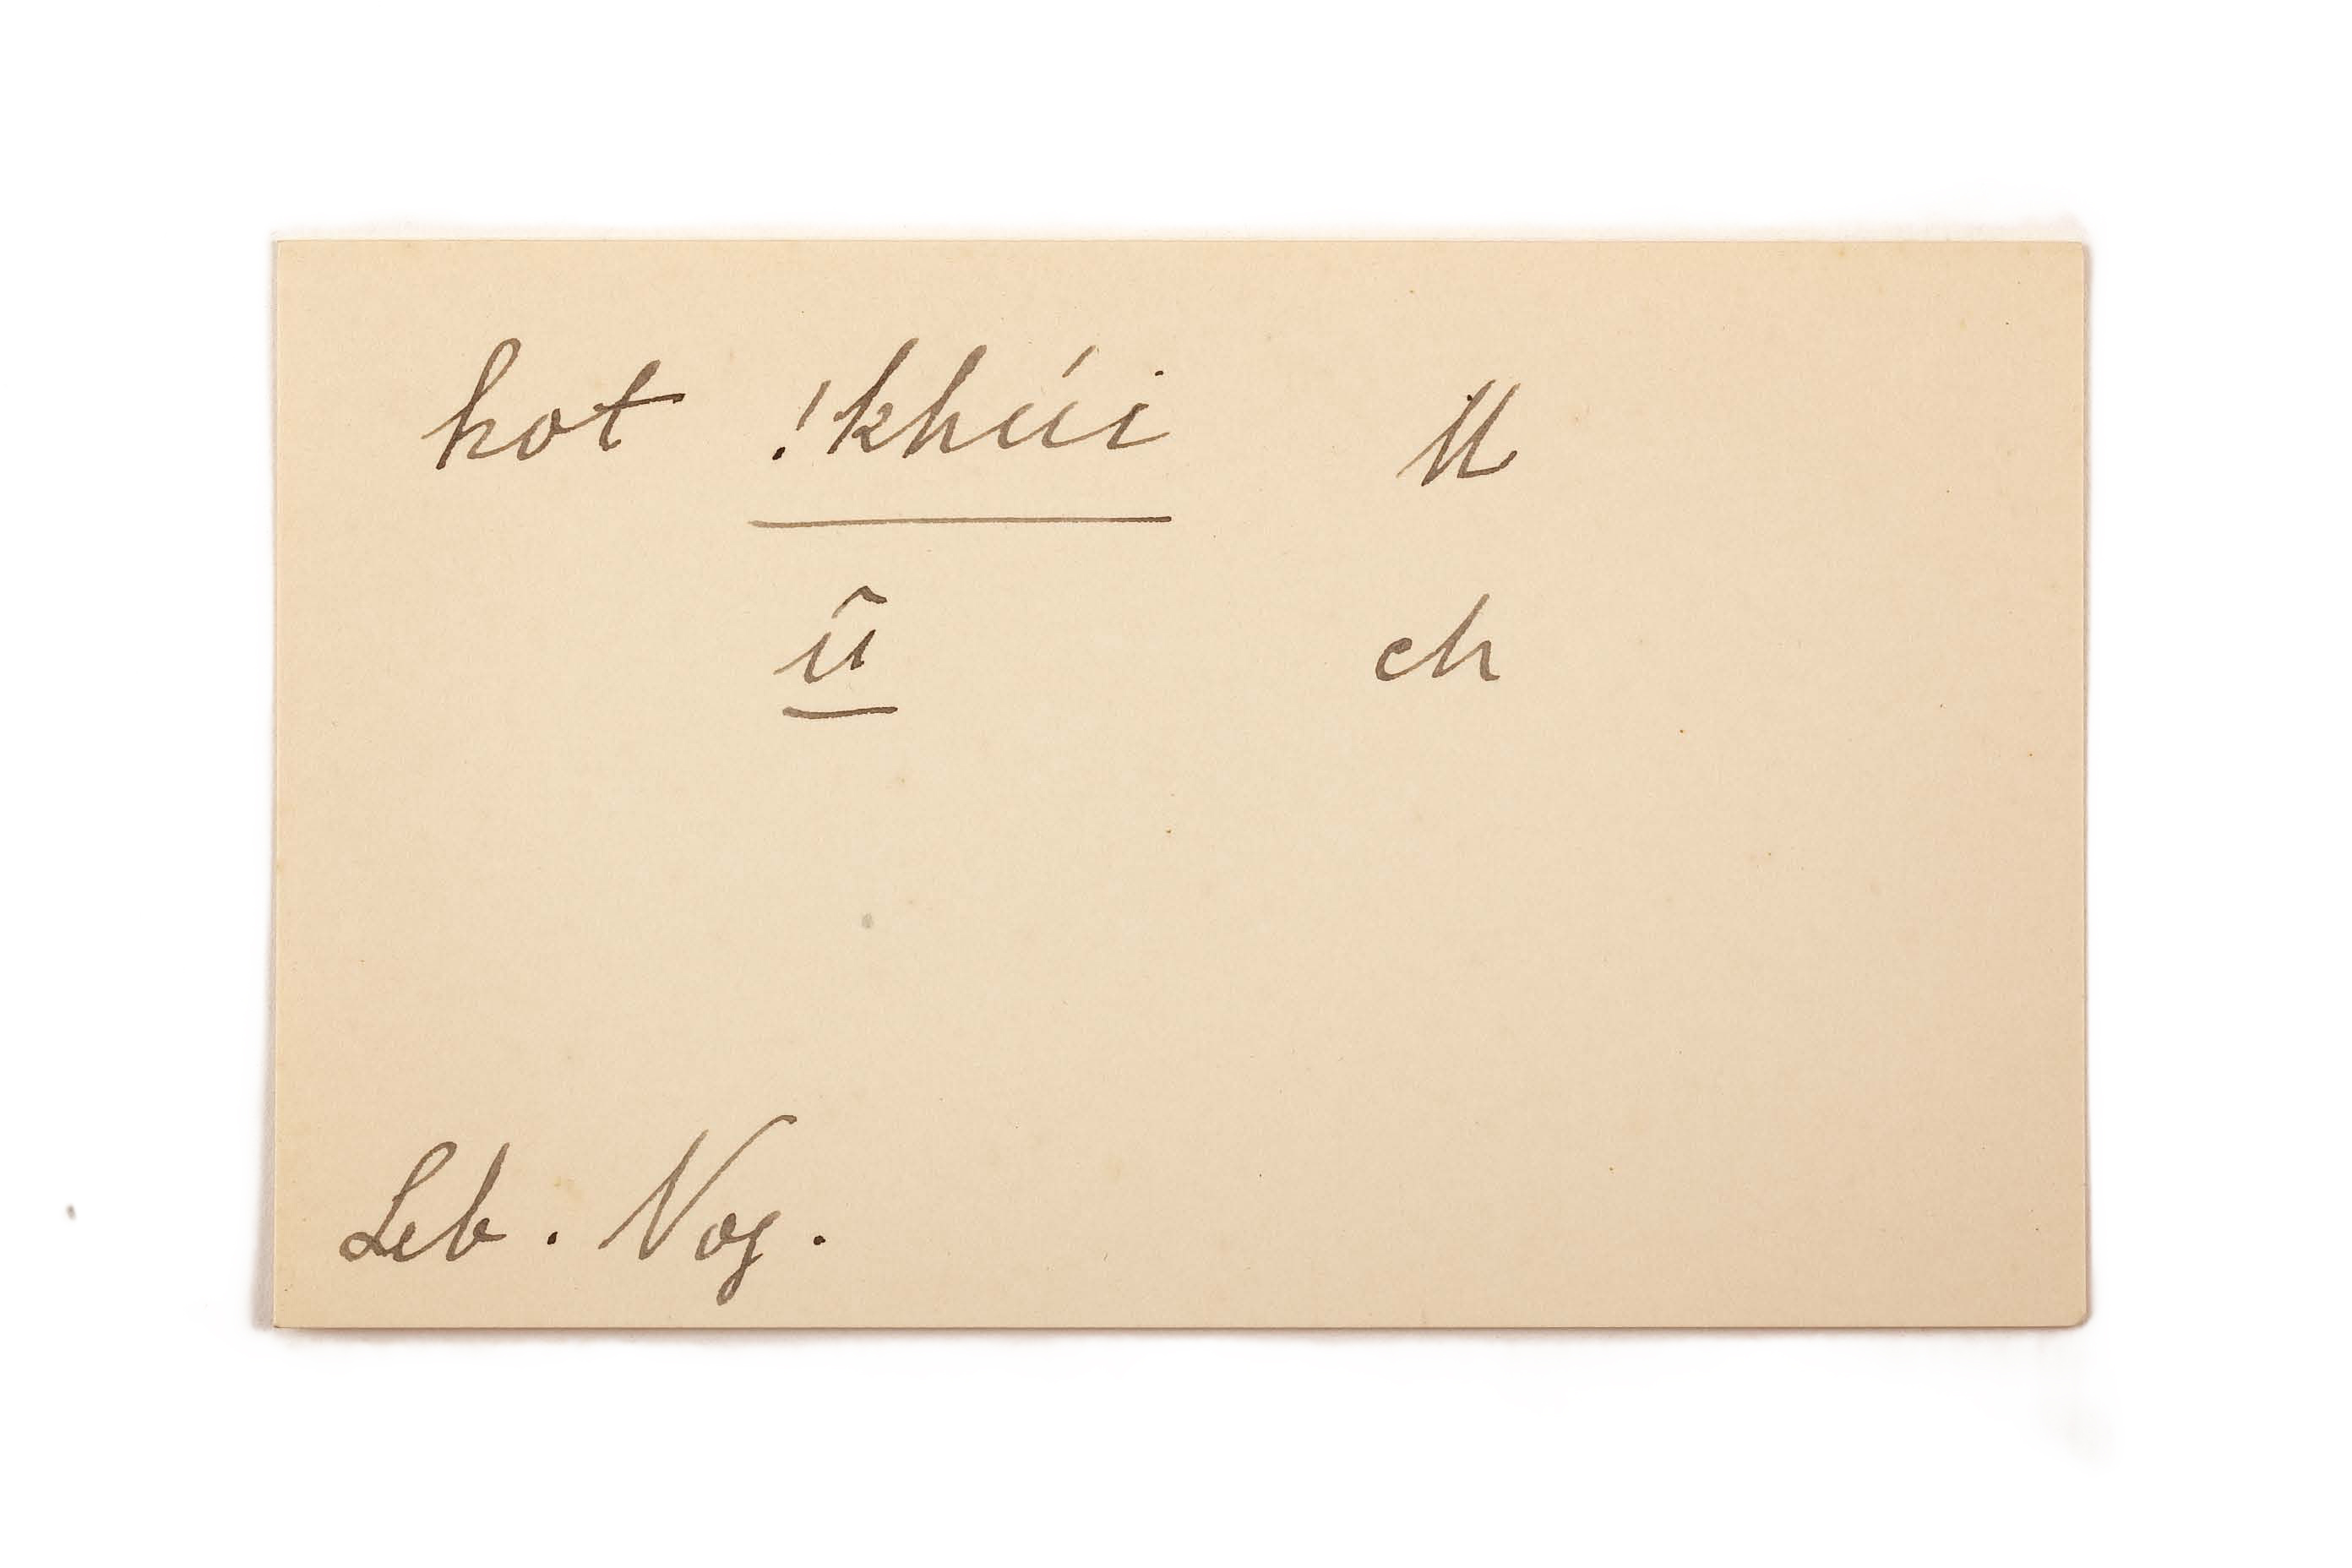 hot !khúi M
û ch
Leb. Nog.